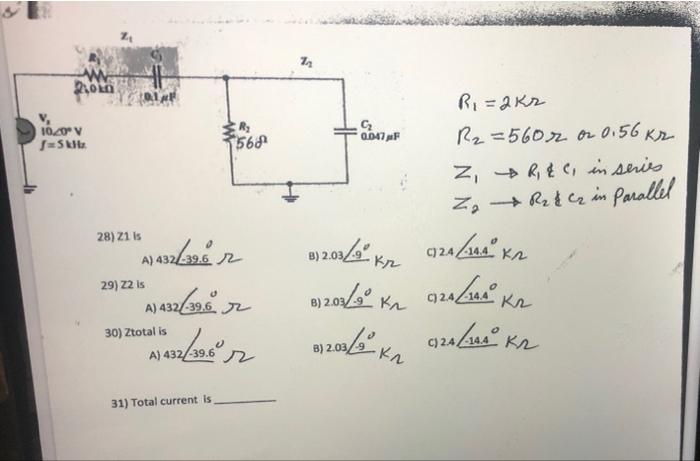 Z₁
R₁
C₁
2.0 kΩ
0.1 µF
Z₂
Vₛ
10∠0° V
f = 5 kHz
R₂
560Ω
C₂
0.047 µF
R₁ = 2KΩ
R₂ = 560Ω or 0.56 KΩ
Z₁ → R₁ & C₁ in series
Z₂ → R₂ & C₂ in parallel
28) Z1 is
A) 432∠-39.6° Ω B) 2.03∠-9° KΩ C) 2.4∠-14.4° KΩ
29) Z2 is
A) 432∠-39.6° Ω B) 2.03∠-9° KΩ C) 2.4∠-14.4° KΩ
30) Ztotal is
A) 432∠-39.6° Ω B) 2.03∠-9° KΩ C) 2.4∠-14.4° KΩ
31) Total current is ________